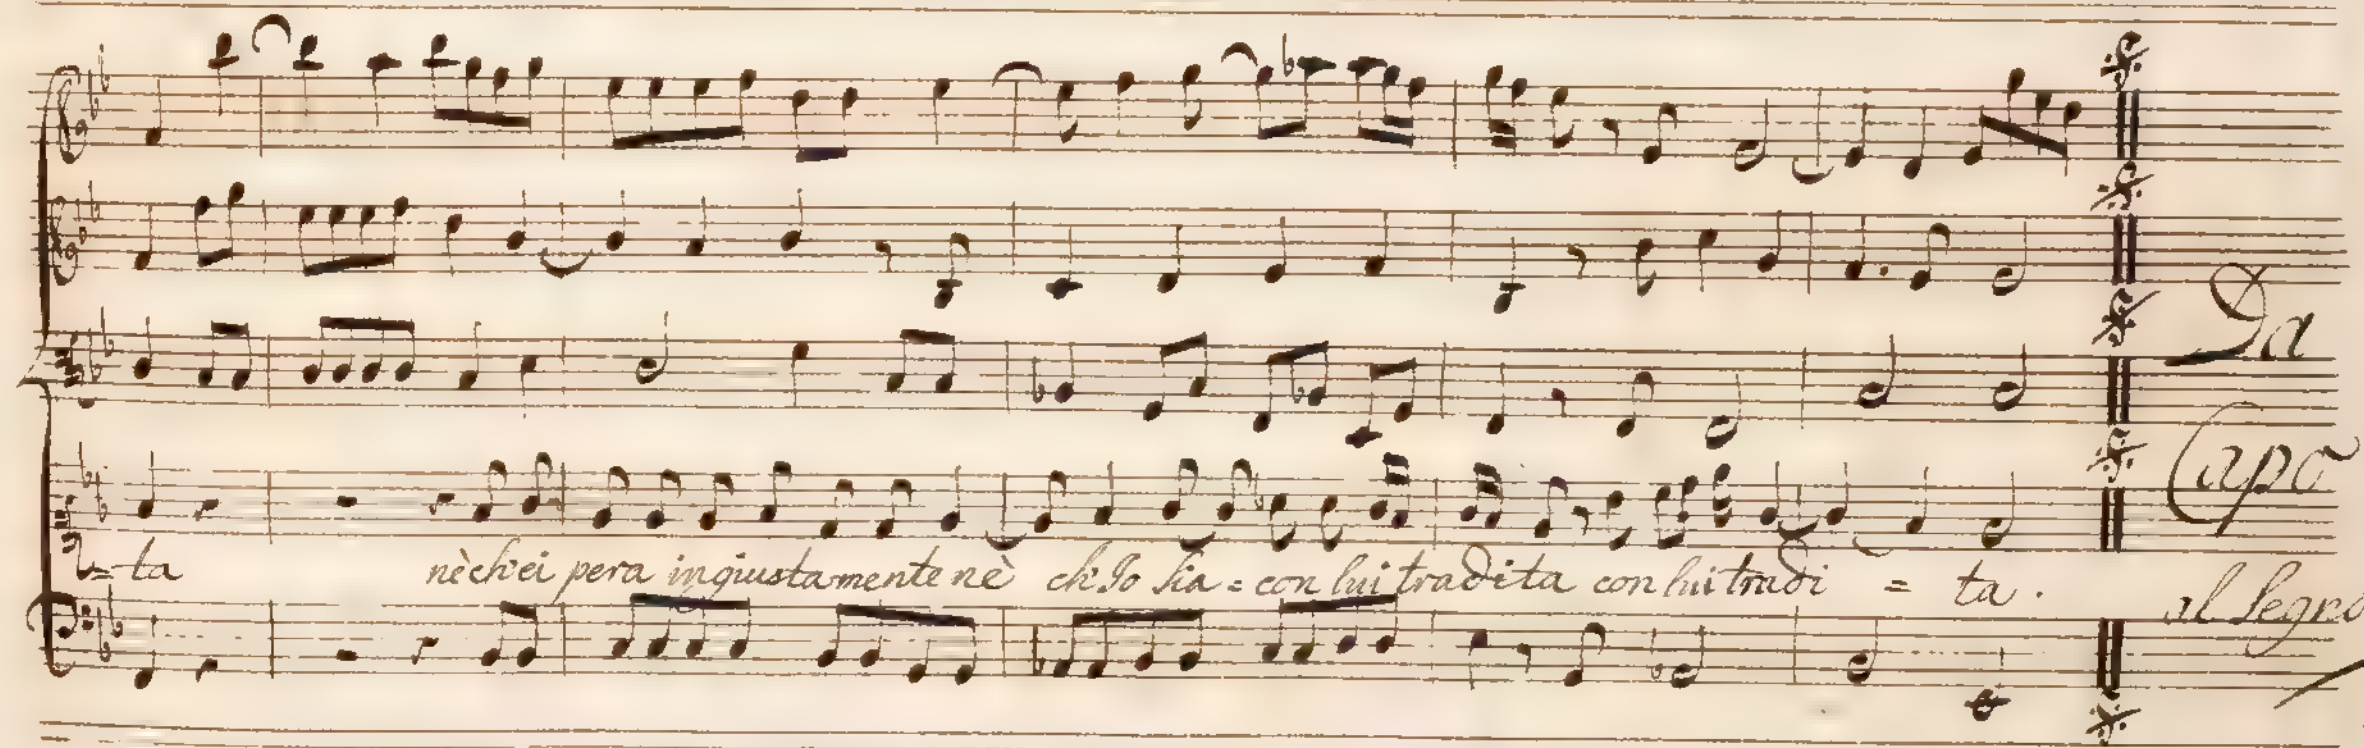 Da
Capo
=ta nè ch'ei pera ingiustamente nè ch'Io sia = con lui tradita con lui tradi = ta.
al Segno